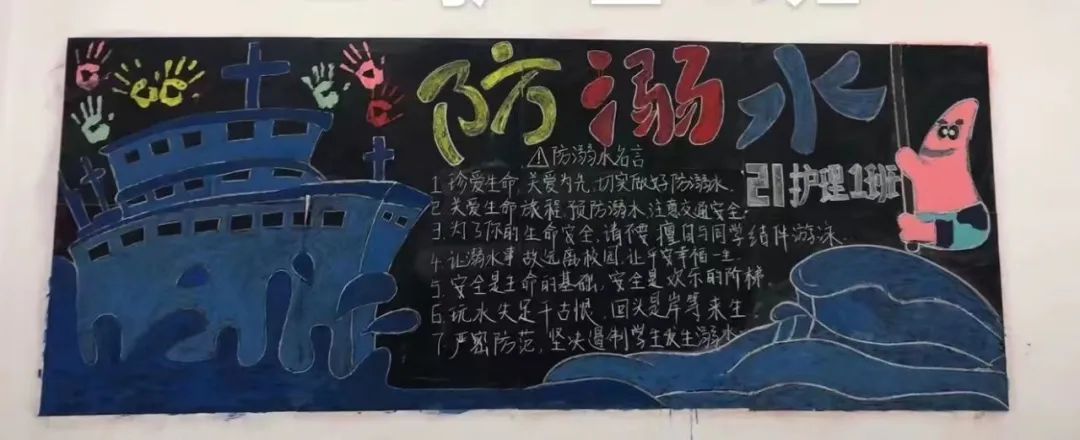 防溺水
⚠防溺水名言
21护理1班
1. 珍爱生命,关爱为先,切实做好防溺水.
2. 关爱生命旅程,预防溺水,注意交通安全.
3. 为了你的生命安全,请不要擅自与同学结伴游泳.
4. 让溺水事故远离校园,让平安幸福一生.
5. 安全是生命的基础,安全是欢乐的阶梯.
6. 玩水失足千古恨,回头是岸等来生.
7. 严密防范,坚决遏制学生发生溺水